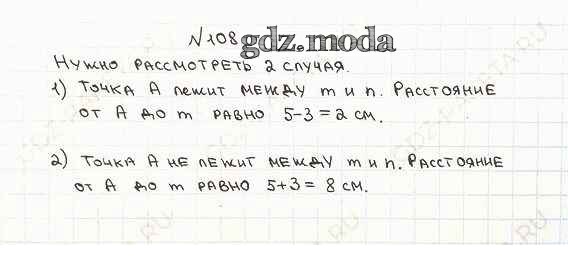 №108 gdz.moda
Нужно рассмотреть 2 случая.
1) Точка А лежит между m и n. Расстояние
от А до m равно 5-3=2 см.
2) Точка А не лежит между m и n. Расстояние
от А до m равно 5+3= 8 см.